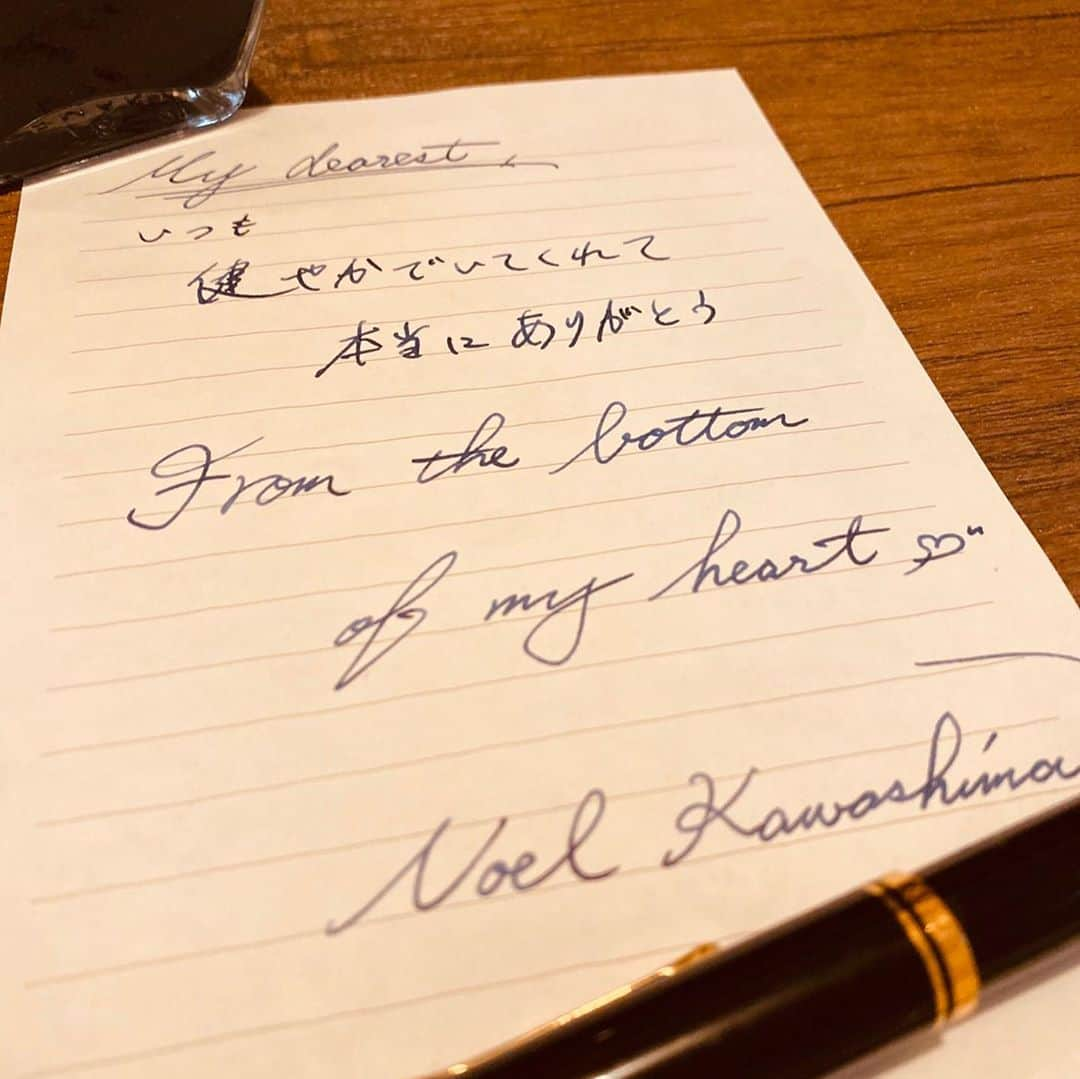 My dearest,
いつも
健やかでいてくれて
本当にありがとう
From the bottom
of my heart
Noel Kawashima